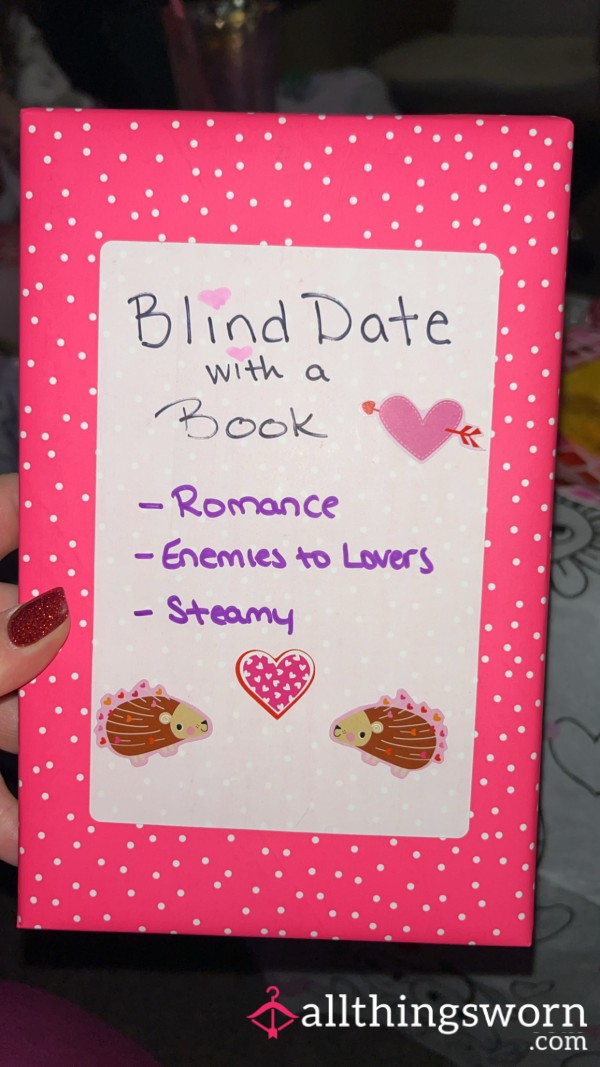 Blind Date
with a
Book
- Romance
- Enemies to Lovers
- Steamy
allthingsworn
.com